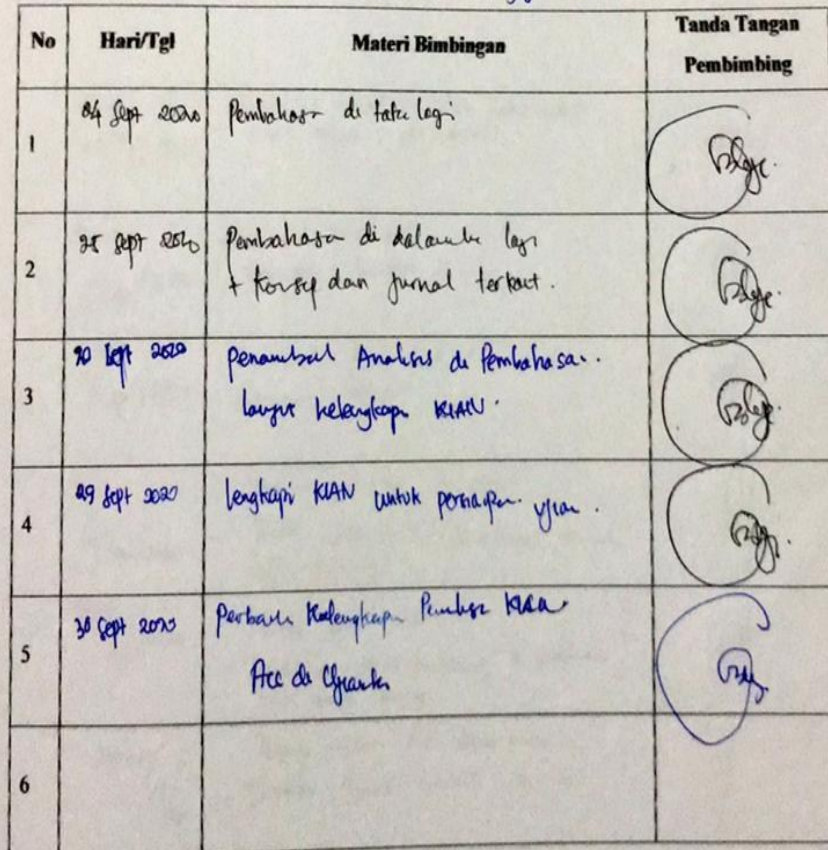 No Hari/Tgl Materi Bimbingan Tanda Tangan Pembimbing
1 04 Sept 2020 Pembahasan di tata lagi
2 25 Sept 2020 Pembahasan di lagi
+ Konsep dan jurnal terkait.
3 Sept 2020 Analisis di Pembahasan.
lanjut kelengkapan KIAN.
4 29 Sept 2020 lengkapi KIAN untuk persiapan ujian.
5 30 Sept 2020 Kelengkapan
Acc di
6